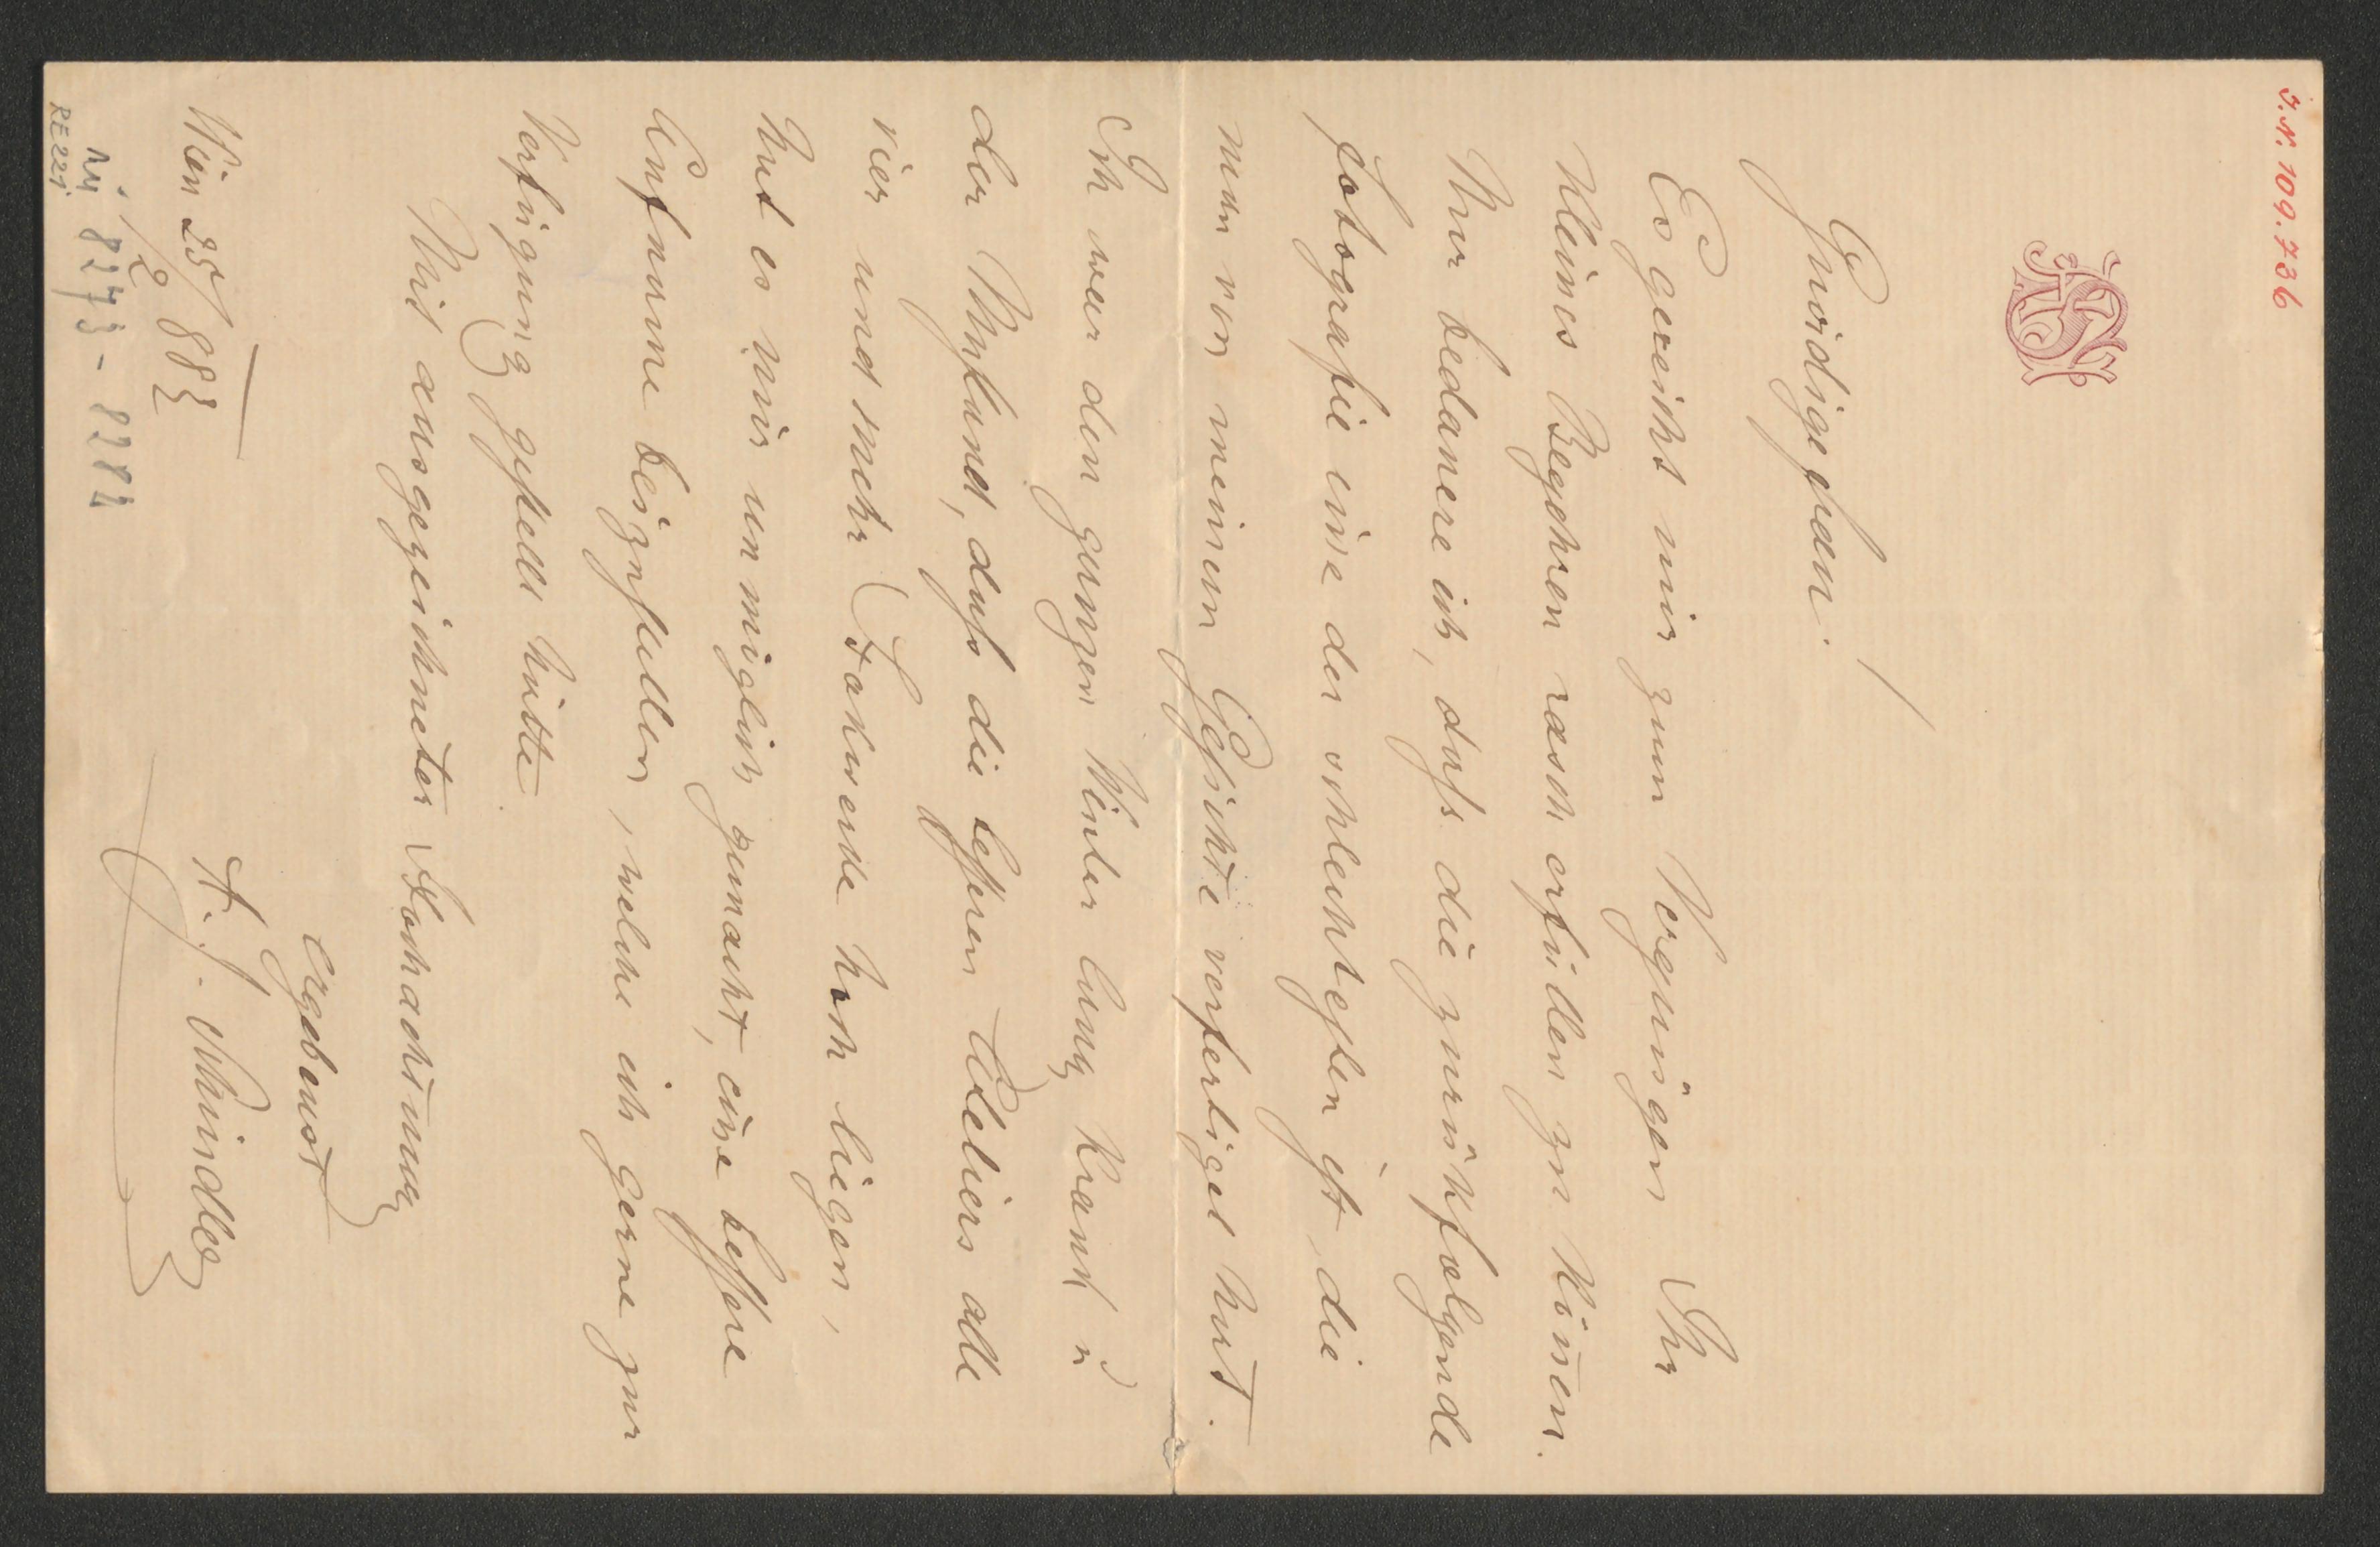 J.N. 109.736
Gnädige Frau!
Es gereicht mir zum Vergnügen Ihr
kleines Begehren rasch erfüllen zu können.
Nur bedauere ich, dass die zurückfolgende
Fotografie eine der schlechtesten ist, die
man von meinem Gesichte verfertiget hat.
Ich war den ganzen Winter lang krank u
der Umstand, dass die besseren Ateliers alle
vier und mehr Stockwerke hoch liegen,
hat es mir unmöglich gemacht, eine bessere
Aufnahme beizustellen, welche ich gerne zur
Verfügung gestellt hätte.
Mit ausgezeichneter Hochachtung
ergebenst
A. J. Schindler
Wien 25/2 883
8273 - 8284
RE2221